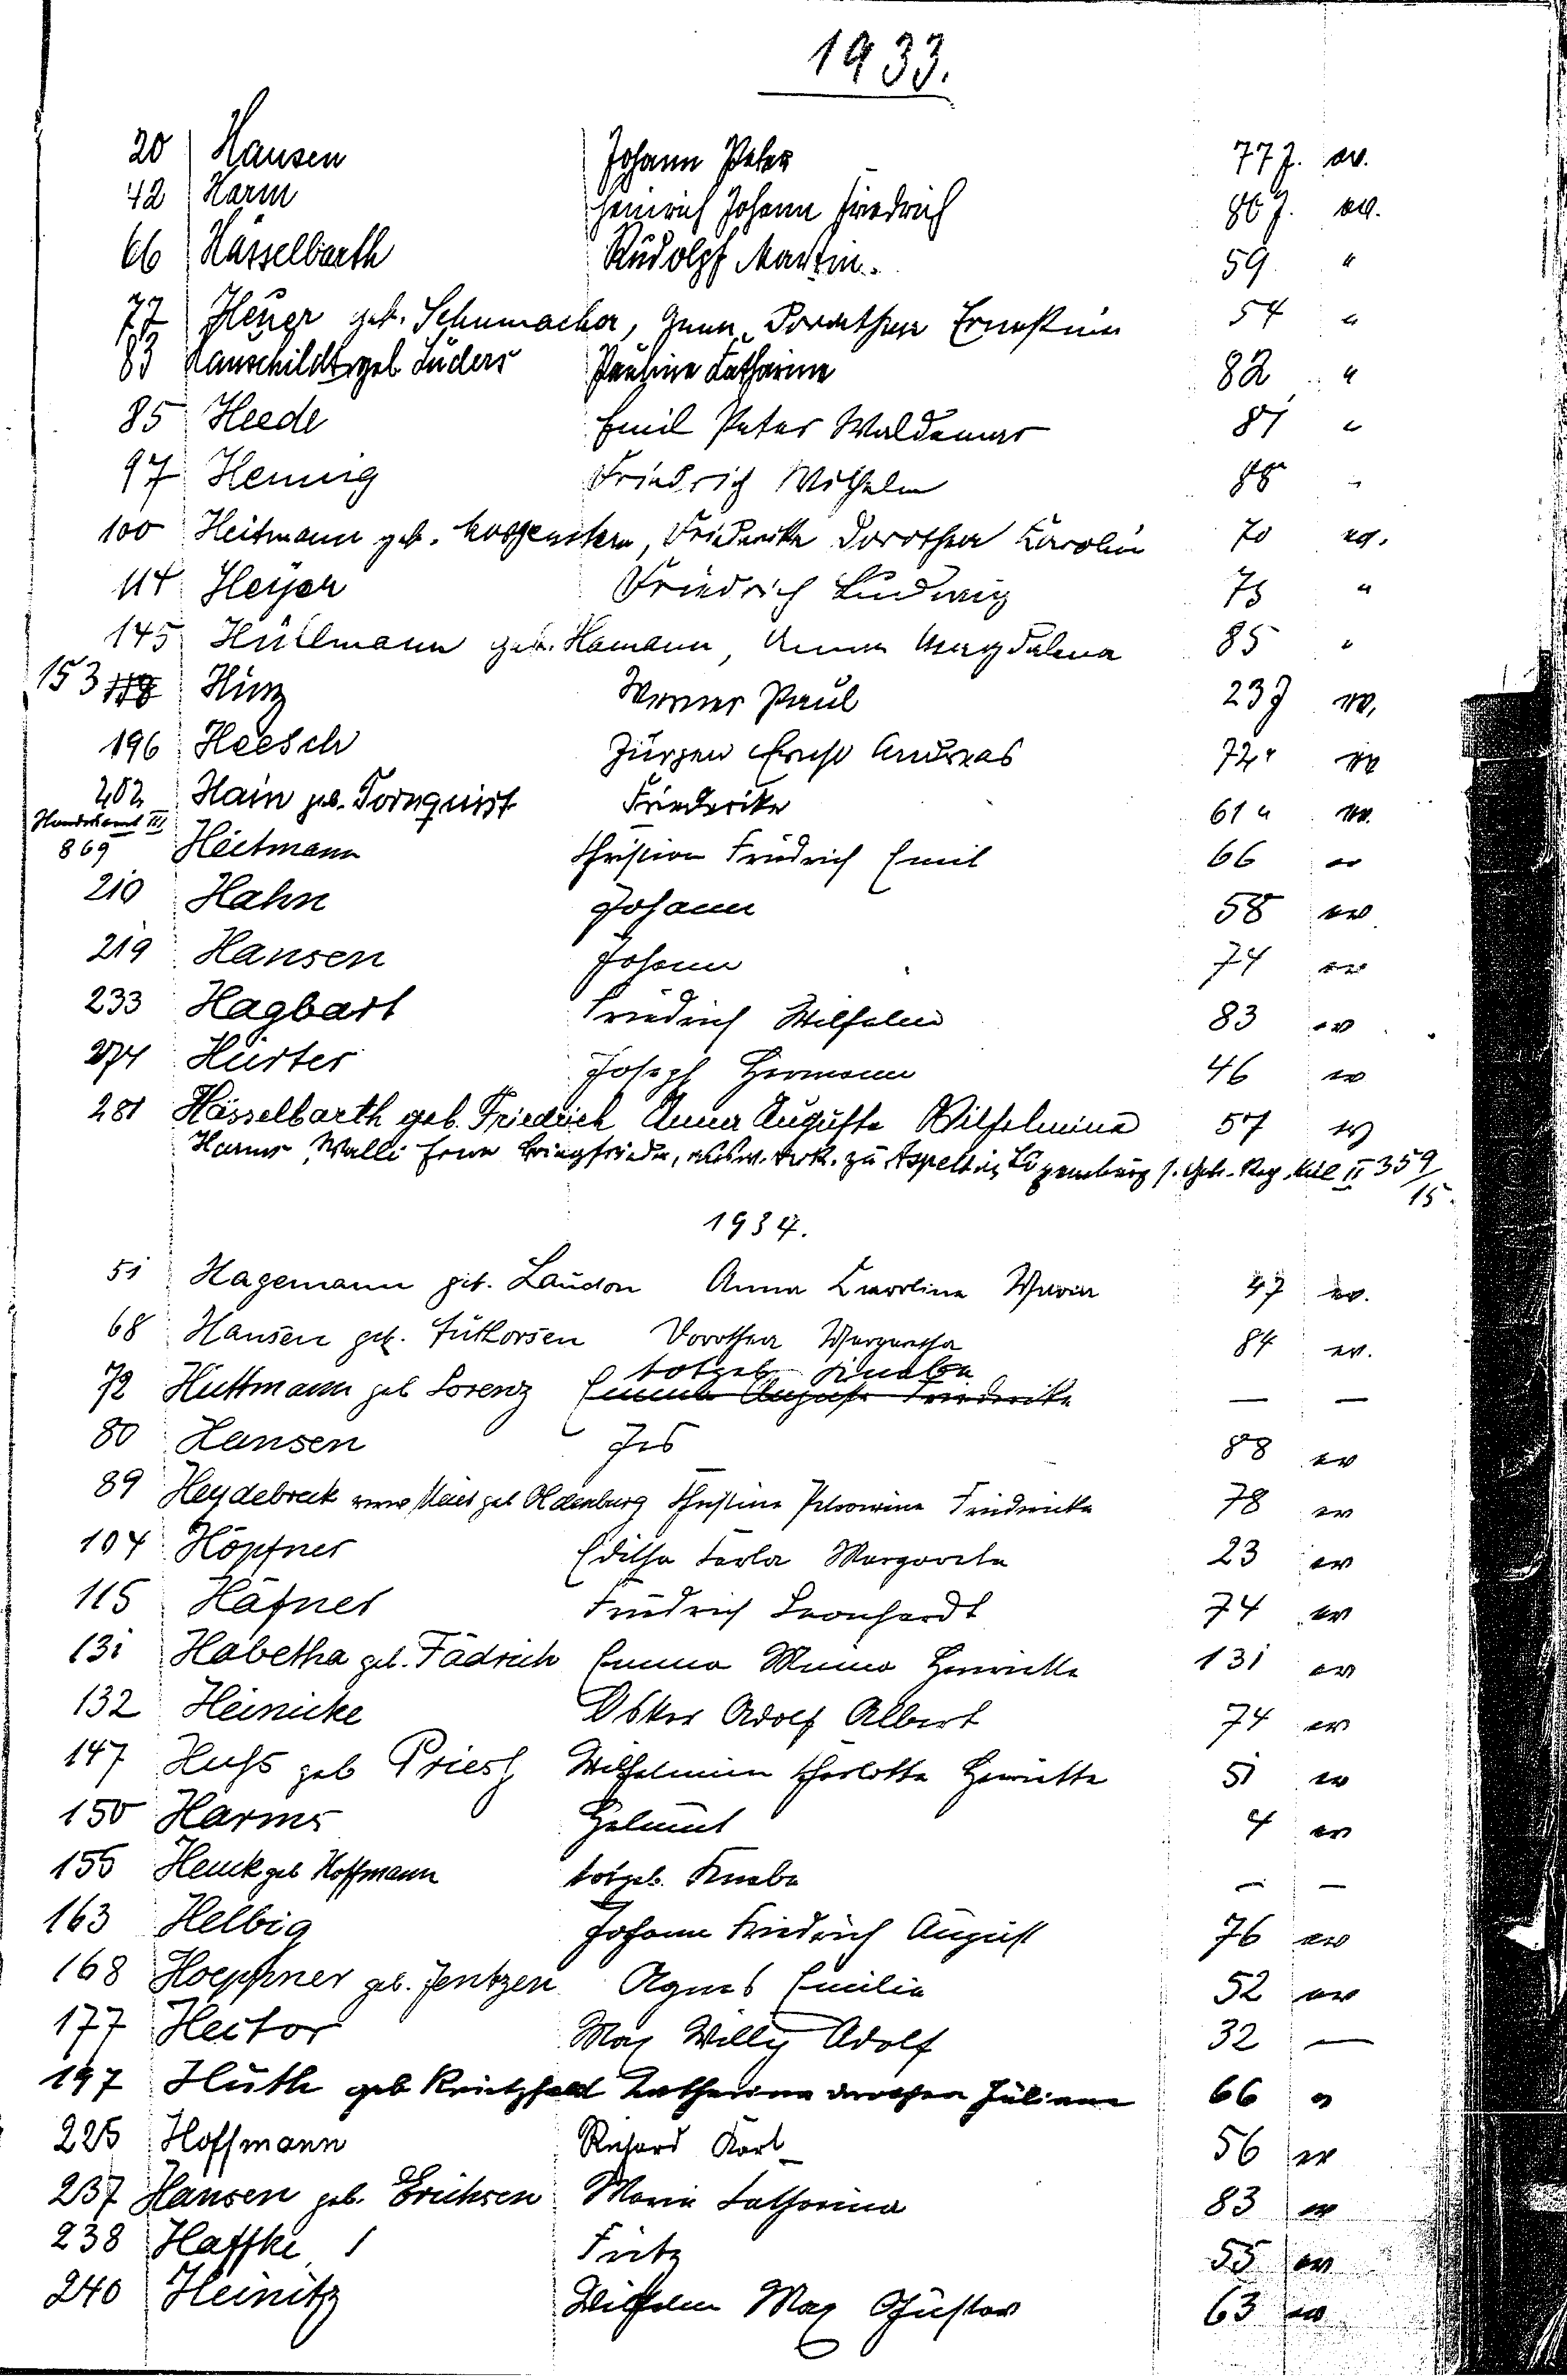 1933.
20 Hansen Johann Peter 77 J. ev.
42 Harm Heinrich Johann Friedrich 86 J. ev.
66 Hässelbarth Rudolph Martin. 59 "
77 Heuer geb. Schumacher, Anna Dorothea Ernestine 54 "
83 Hauschildt geb. Lüders Pauline Catharine 82 "
85 Heede Emil Peter Waldemar 81 "
97 Hennig Friedrich Wilhelm 88 "
100 Heitmann geb. Friederike Dorothea Karolin 70 ev.
114 Heyer Friedrich Ludwig 73 "
145 Hüllmann geb. Hamann, Anna Magdalena 85 "
153 Hinz Werner Paul 23 J ev.
196 Heesch Jürgen Ernst Andreas 72 " ev
202 Hain geb. Tornquist Friederike 61 " ev.
Standesamt III
869 Heitmann Christian Friedrich Emil 66 ev
210 Hahn Johann 58 ev
219 Hansen Johann 74 ev
233 Hagbart Friedrich Wilhelm 83 ev
274 Hürter Joseph Hermann 46 ev
281 Hässelbarth geb. Friedrich Anna Auguste Wilhelmine 57 ev
Harms, Walli Erna Kriegfriede, zu Aspelt in Luxemburg s. Geb. Reg. Kiel II 359/15.
1934.
51 Hagemann geb. Laudon Anna Karoline Maria 47 ev.
68 Hansen geb. Dorothea Margaretha 84 ev.
totgeb. Knabe
72 Hüttmann geb Lorenz Emma Auguste Friederike — —
80 Hansen Jes 88 ev
89 Heydebreck verw geb Oldenburg Christine Friedericke 78 ev
104 Höpfner Editha Carla Margareta 23 ev
115 Häfner Friedrich Leonhardt 74 ev
131 Habetha geb. Fädrich Emma Minna Henriette 131 ev
132 Heinicke Oskar Adolf Albert 74 ev
147 Huß geb Priest Wilhelmine Charlotte Henriette 51 ev
150 Harms Helmut 4 ev
155 Henck geb Hoffmann totgeb. Knabe — —
163 Helbig Johann Friedrich August 76 ev
168 Hoeppner geb. Jentzen Agnes Emilie 52 ev
177 Hector Max Willy Adolf 32 —
197 Huth geb Kreutzfeld Catharina Dorothea Juliane 66 "
225 Hoffmann Richard Karl 56 ev
237 Hansen geb. Erichsen Maria Catharina 83 ev
238 Haffke Fritz 55 ev
240 Heinitz Wilhelm Max Gustav 63 ev